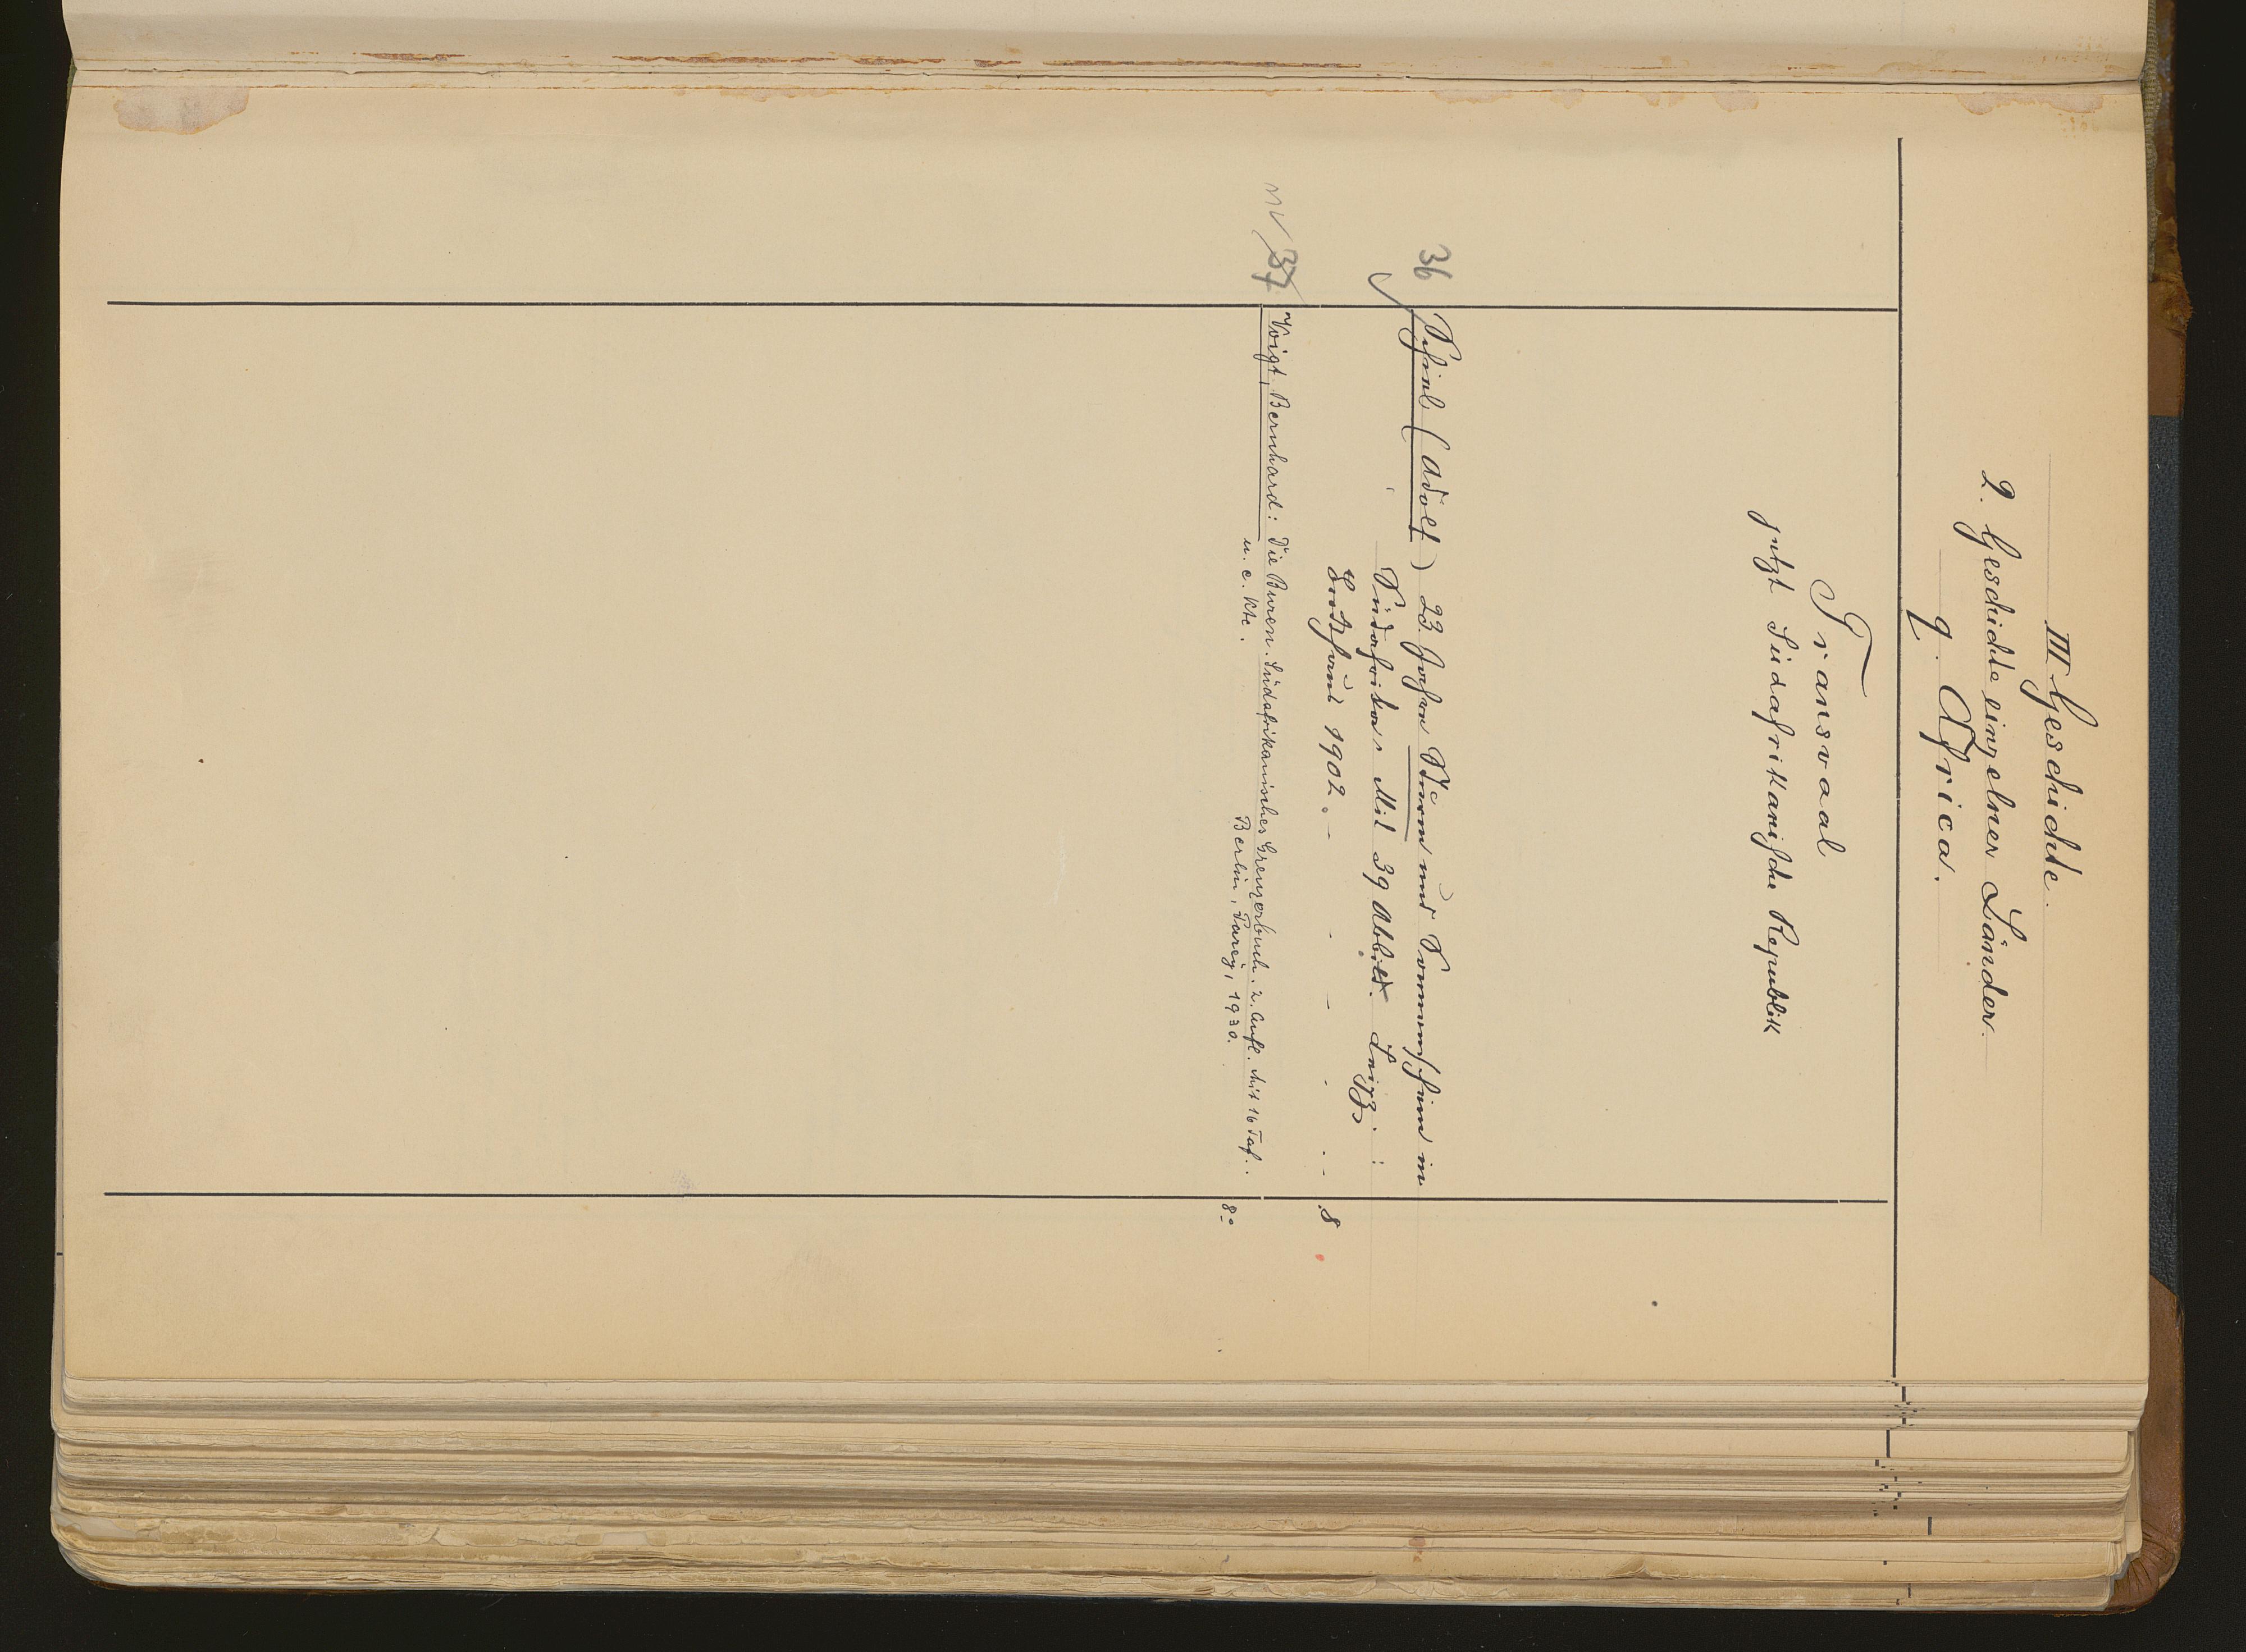 III Geschichte.
2. Geschichte einzelner Länder.
q. Africa.
Transvaal
jetzt Südafrikanische Republik
36 Schiel (Adolf) 23 Jahre Sturm und Sonnenschein in
Südafrika. Mit 39 Abbild. Leipz:
Brockhaus 1902. - - - - - - 8
37 Voigt, Bernhard: Die Buren. Südafrikanisches Grenzerbuch. 2. Aufl. Mit 16 Taf.
u. e. Kte. Berlin, Parey, 1930. 8°